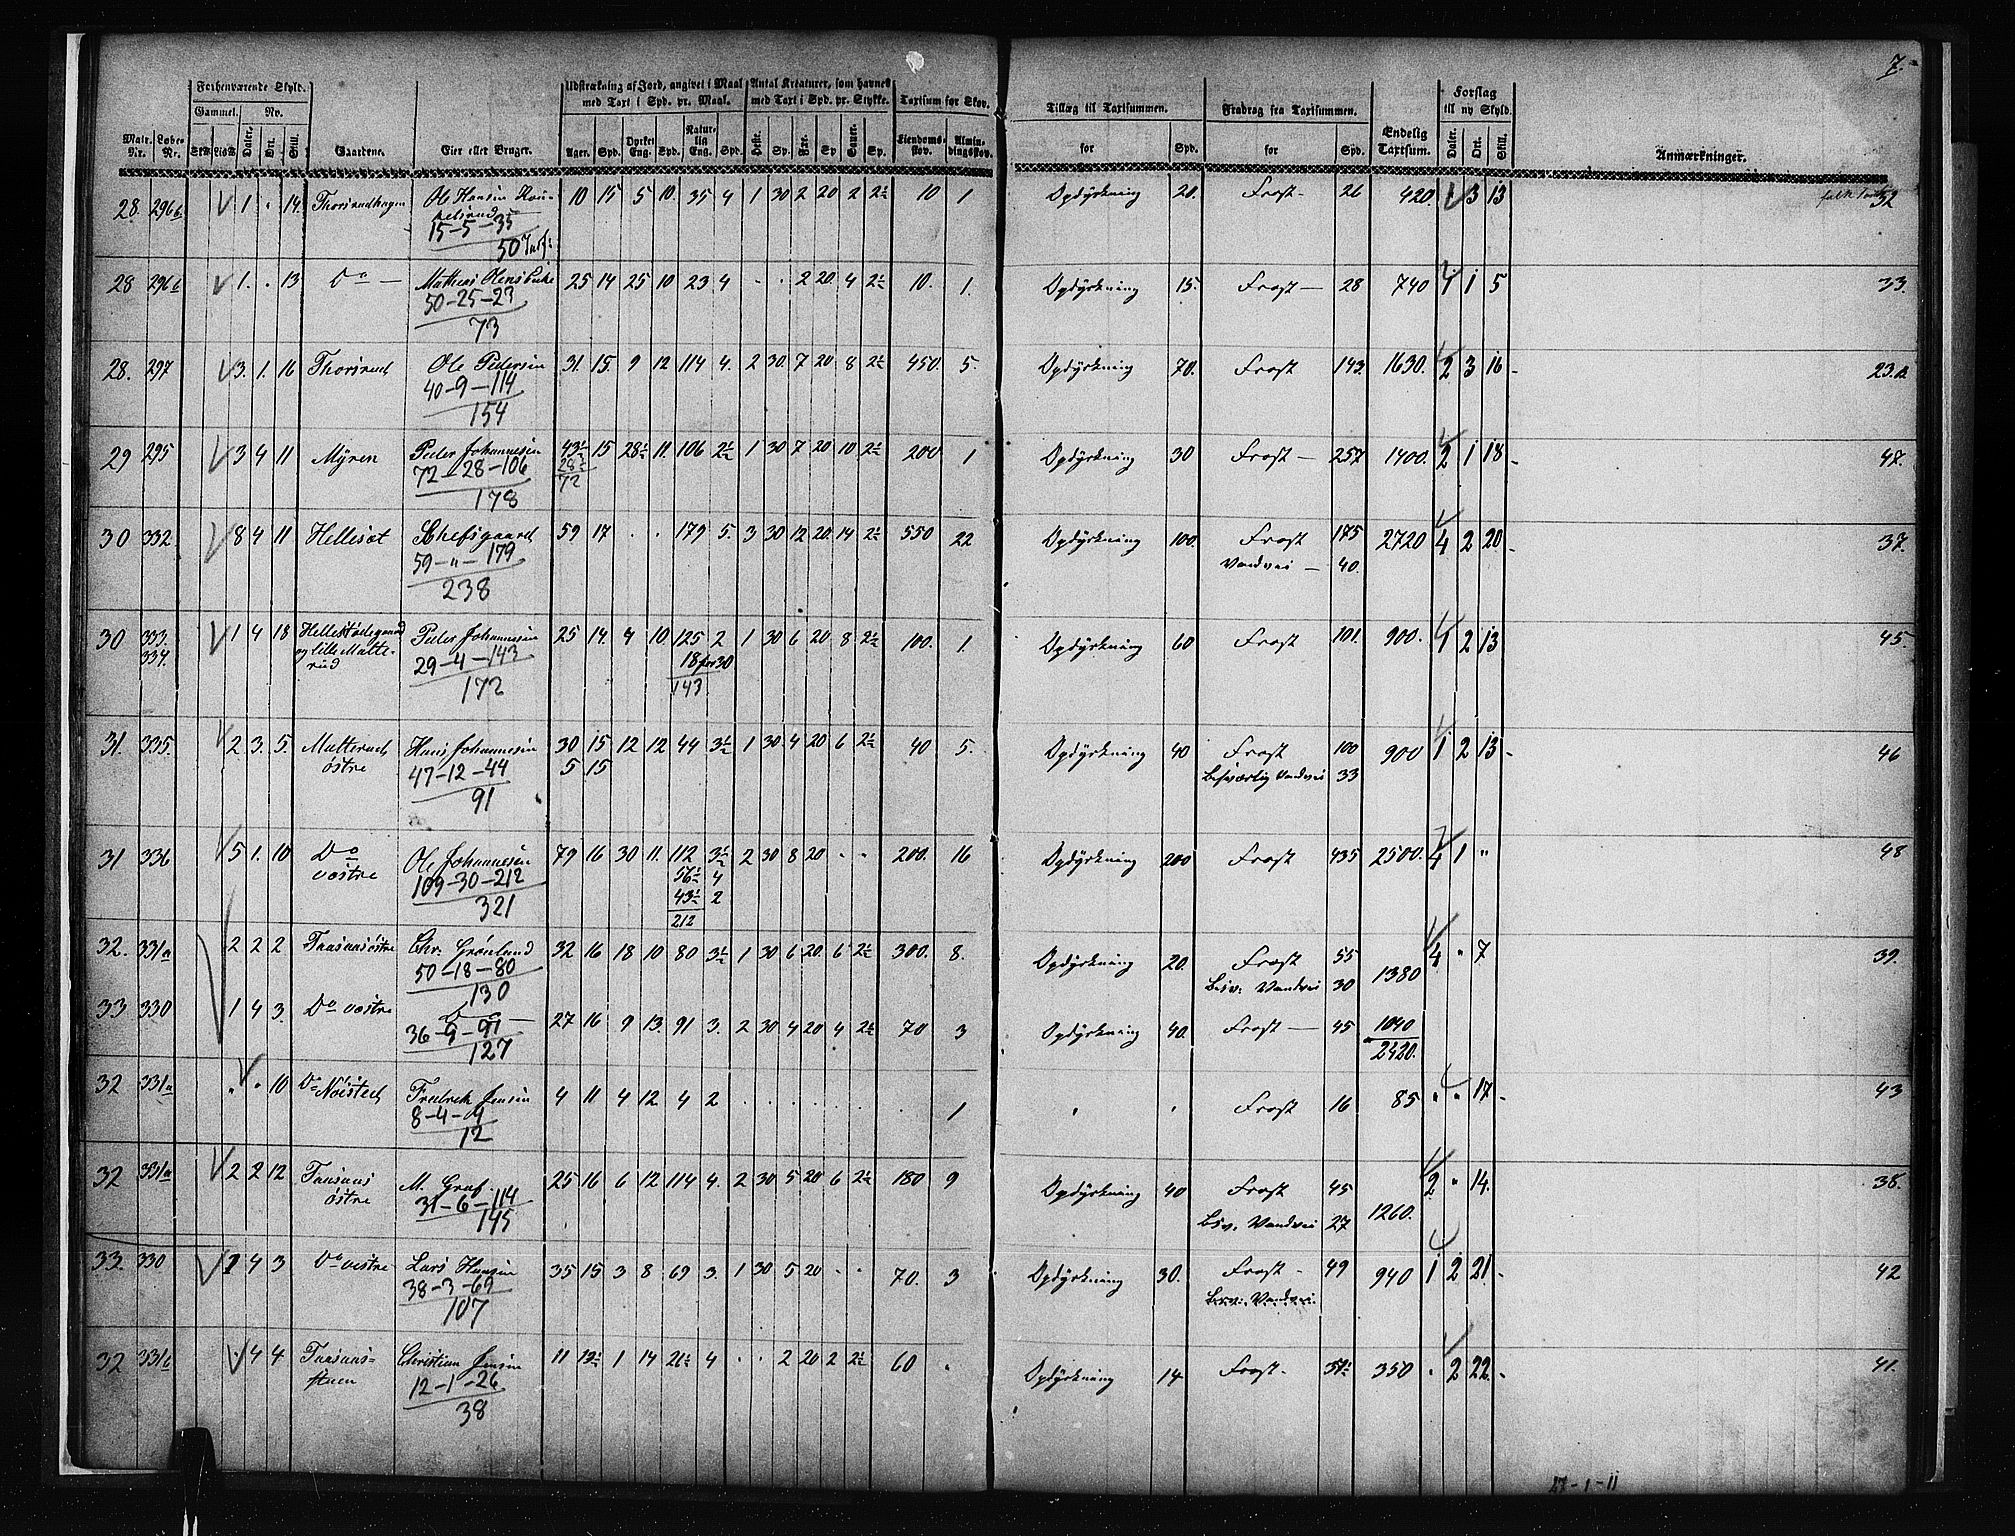 7.
Forhenværende Skyld. Udstrækning af Jord, angivet i Maal Antal Kreaturer, som havnes Forslag
Gammel. Ny. med Taxt i Spd. pr. Maal. med Taxt i Spd. pr. Stykke. Taxtsum for Skov. Tillæg til Taxtsummen. Fradrag fra Taxtsummen. til ny Skyld.
Matr. Nr. Løbe-Nr. Daler. Ort. Skill. Gaardene. Eier eller Bruger. Ager. Spd. Dyrket Eng. Spd. Naturlig Eng. Spd. Heste. Sp. Fæ. Sp Smaaer. Sp. Eiendomsskov. Almindingsskov. for Spd. for Spd. Endelig Taxtsum. Daler. Ort. Skill. Anmærkninger.
28. 296 1. . 14. Thorsrudhagen Ole Hansen 10 15 5 10. 35 4 1 30 2 20 2 2½ 10 1 Opdyrkning 20. Frost- 26 420. 1 3 13 52
15-5-35
50
28 296 1. . 13 Do — Mathias 25 14 25 10 23 4 . . 2 20 4 2½ 10. 1. Opdyrkning 15. Frost — 28 740 1 1 5 33.
50-25-23
73
28. 297 3. 1. 16 Thorsrud Ole Pedersen 31. 15. 9 12 114 4. 2 30. 7 20 8 2½ 450. 5. Opdyrkning 70. Frost 143. 1630. 2 3 16 23.a
40-9-114
154
29 295 3 4 11 Myren Peder Johannesen 43½ 15 28½ 11 106 2½ 1 30 7 20 10 2½ 200 1 Opdyrkning 30 Frost — 257 1400. 2 1 18 47.
72-28-106 28½
178 72
30 332 8 4 11 Hellesæt 59 17 . . 179 5. 3 30 12 20 14 2½ 550 22 Opdyrkning 100. Frost 175 2720 4 2 20 37.
59-"-179 Vandvei — 40.
238
30 333. 1 4 18 Peder Johannesen 25 14. 4 10. 125 2 1 30 6 20 8 2½ 100. 1. Opdyrkning 60 Frost 101. 900. 1 2 13 45.
334. og lille Malterud 29-4-143 18 for 30
172 143
31. 335. 2. 3. 5. Malterud Hans Johannesen 30 15 12 12 44 3½ 1 30 4 20 6 2½ 40 5. Opdyrkning 40 Frost 100 900 1 2 13 46
østre 47-12-44 5 15 Besværlig Vandvei 33
91
31 336 5 1. 10 Do Ole Johannesen 79 16 30 11. 112 3½ 2 30 8 20 . . 200. 16 Opdyrkning 200 Frost 435 2500. 4 1 " 48
vestre 109-30-212 56½ 4
321 43½ 2
212
32. 331a 2 2 2 Taasaas østre Chr. Grönlund 32 16 18 10 80 3½ 1 30 6 20. 6 2½ 300. 8. Opdyrkning 20. Frost 55 1380 4 " 7 39.
50-18-80 Besv: Vandvei 30
130
33 330 1 4 3. Do vestre Do — 27 16 9 13. 91 3. 2 30 4 20 4 2½ 70 3 Opdyrkning 40. Frost — 45 1040
36-9-91 2420.
127
32 331a " " 10 Do Nøisted Fredrik Jensen 4 11 4 12 4 2 . . . . . . . 1 Frost 16 85 " " 17 43
8-4-4
12
32 331a 2 2 12 Taasaas M. Graf. 25 16 6 12 114 4. 2 30 5 20 6 2½ 180 9 Opdyrkning 40 Frost 45 1260. 2 " 14. 38.
østre 31-6-114 Besv. Vandvei 27
145
33. 330 1 4 3 Do vestre Lars Hansen 35 15 3 8 69 3. 1 30 5 20 . . 70. 3 Opdyrkning 30. Frost - 49 940 1 2 21. 42
38-3-69 Besv. Vandvei.
107
32 331 . 4 4 Taasaas- Christian Jensen 11 1 14 26½ 4 . . 2 20 2 2½ 60 . Opdyrkning 14 Frost- 350 . 2 22. 41.
stuen 12-1-26
38
17-1-11